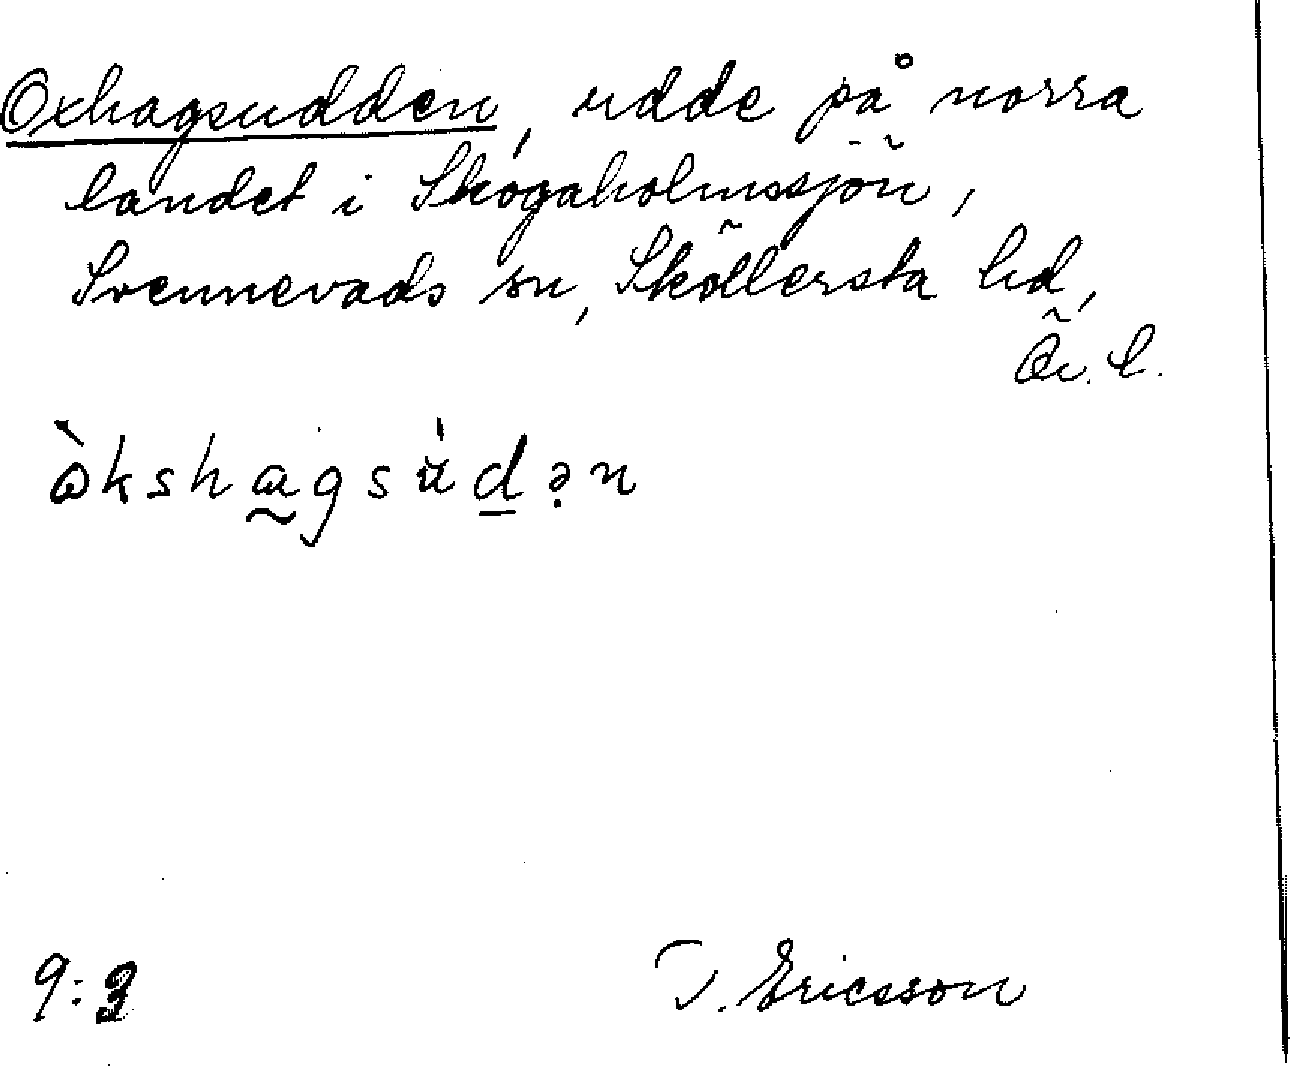 Oxhagsudden, udde på norra
landet i Skogaholmssjön,
Svennevads sn, Sköllersta hd,
Ör. l.
ὼksha̰gsu̍ḏə̣n
9:3
T. Ericsson